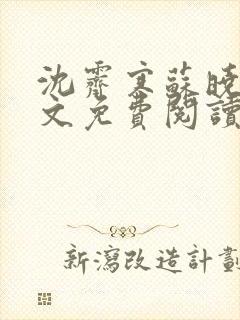 沈霽寒蘇曉
文免費閱讀
新瀉改造計劃